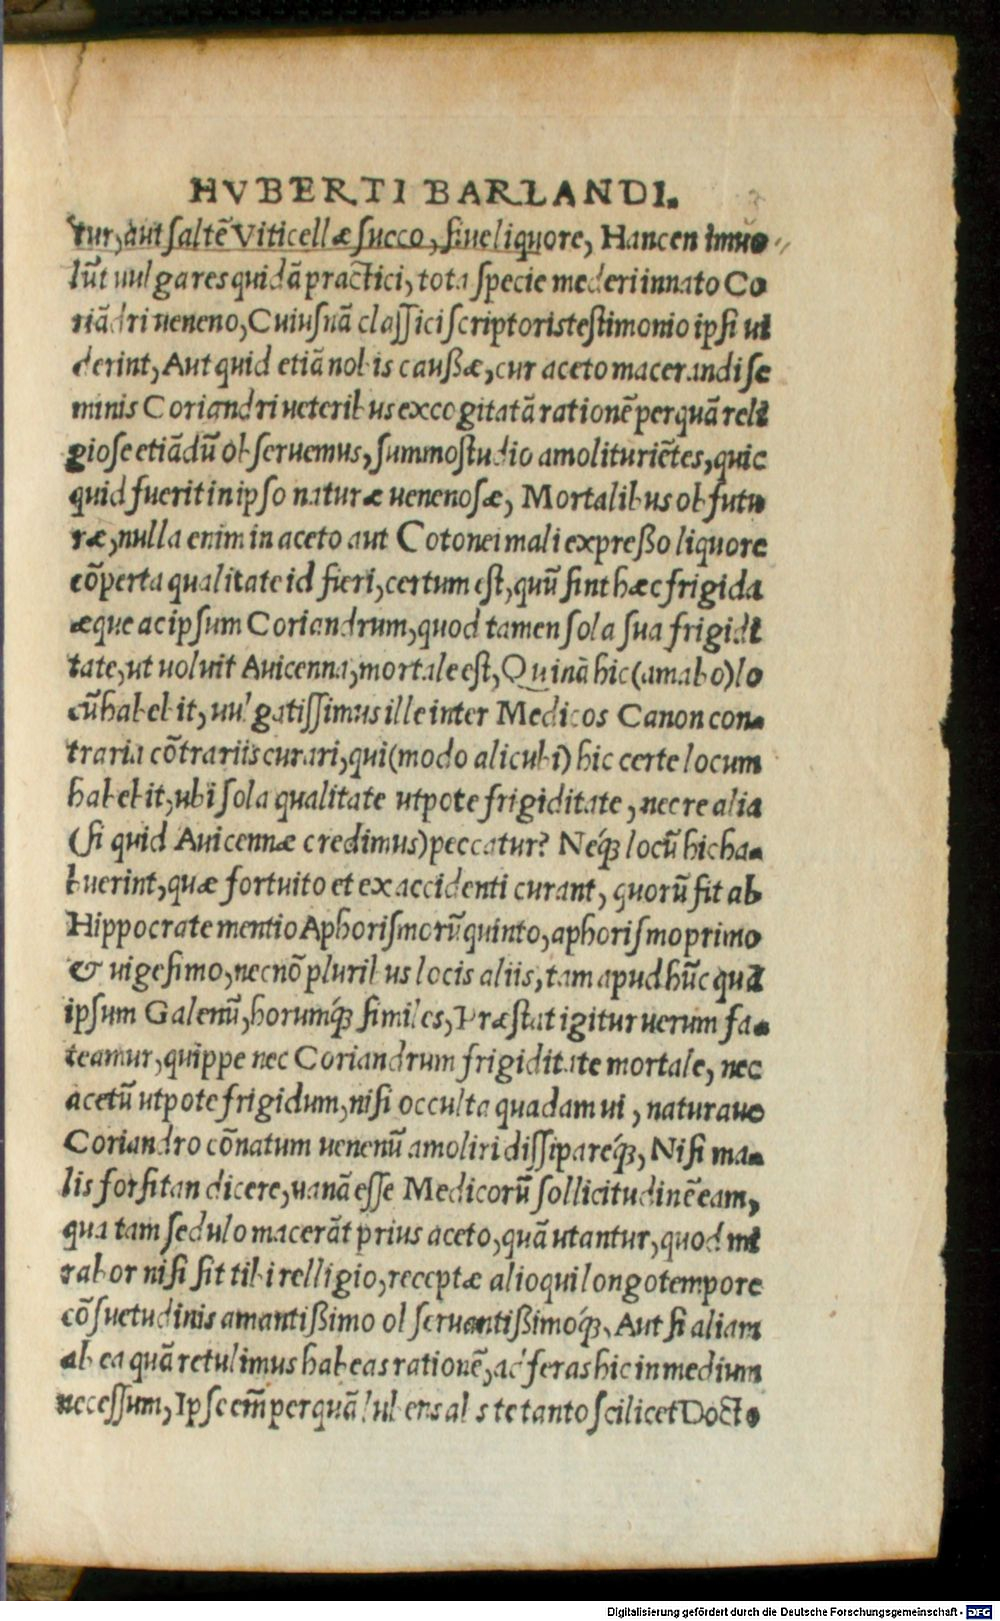 HVBERTI BARLANDI.
tur, aut saltē Viticellæ succo, siue liquore, Hanc en imuo
lūt uulgares quidā practici, tota specie mederi innato Co
riādri ueneno, Cuius nā classici scriptoris testimonio ipsi ui
derint, Aut quid etiā nobis caußæ, cur aceto macerandi se
minis Coriandri ueteribus excogitatā rationē perquā reli
giose etiādū obseruemus, summo studio amolituriētes, quic
quid fuerit in ipso naturæ uenenosæ, Mortalibus obfutu
ræ, nulla enim in aceto aut Cotonei mali expreßo liquore
cōperta qualitate id fieri, certum est, quū sint hæc frigida
æque ac ipsum Coriandrum, quod tamen sola sua frigidi
tate, ut uoluit Auicenna, mortale est, Qui nā hic (amabo) lo
cū habebit, uulgatissimus ille inter Medicos Canon con-
traria cōtrariis curari, qui (modo alicubi) hic certe locum
habebit, ubi sola qualitate utpote frigiditate, nec re alia
(si quid Auicennæ credimus) peccatur? Neq́; locū hic ha-
buerint, quæ fortuito et ex accidenti curant, quorū fit ab
Hippocrate mentio Aphorismorū quinto, aphorismo primo
& uigesimo, necnō pluribus locis aliis, tam apud hūc quā
ipsum Galenū, horumq́; similes, Præstat igitur uerum fa-
teamur, quippe nec Coriandrum frigiditate mortale, nec
acetū utpote frigidum, nisi occulta quadam ui, naturaue
Coriandro cōnatum uenenū amoliri dissipareq́;, Nisi ma-
lis forsitan dicere, uanā esse Medicorū sollicitudinē eam,
qua tam sedulo macerāt prius aceto, quā utantur, quod mi
rabor nisi sit tibi relligio, receptæ alioqui longo tempore
cōsuetudinis amantißimo obseruantißimoq́;, Aut si aliam
ab ea quā retulimus habeas rationē, adferas hic in medium
necessum, Ipse em̄ perquā lubens abs te tanto scilicet Docto
Digitalisierung gefördert durch die Deutsche Forschungsgemeinschaft - DFG